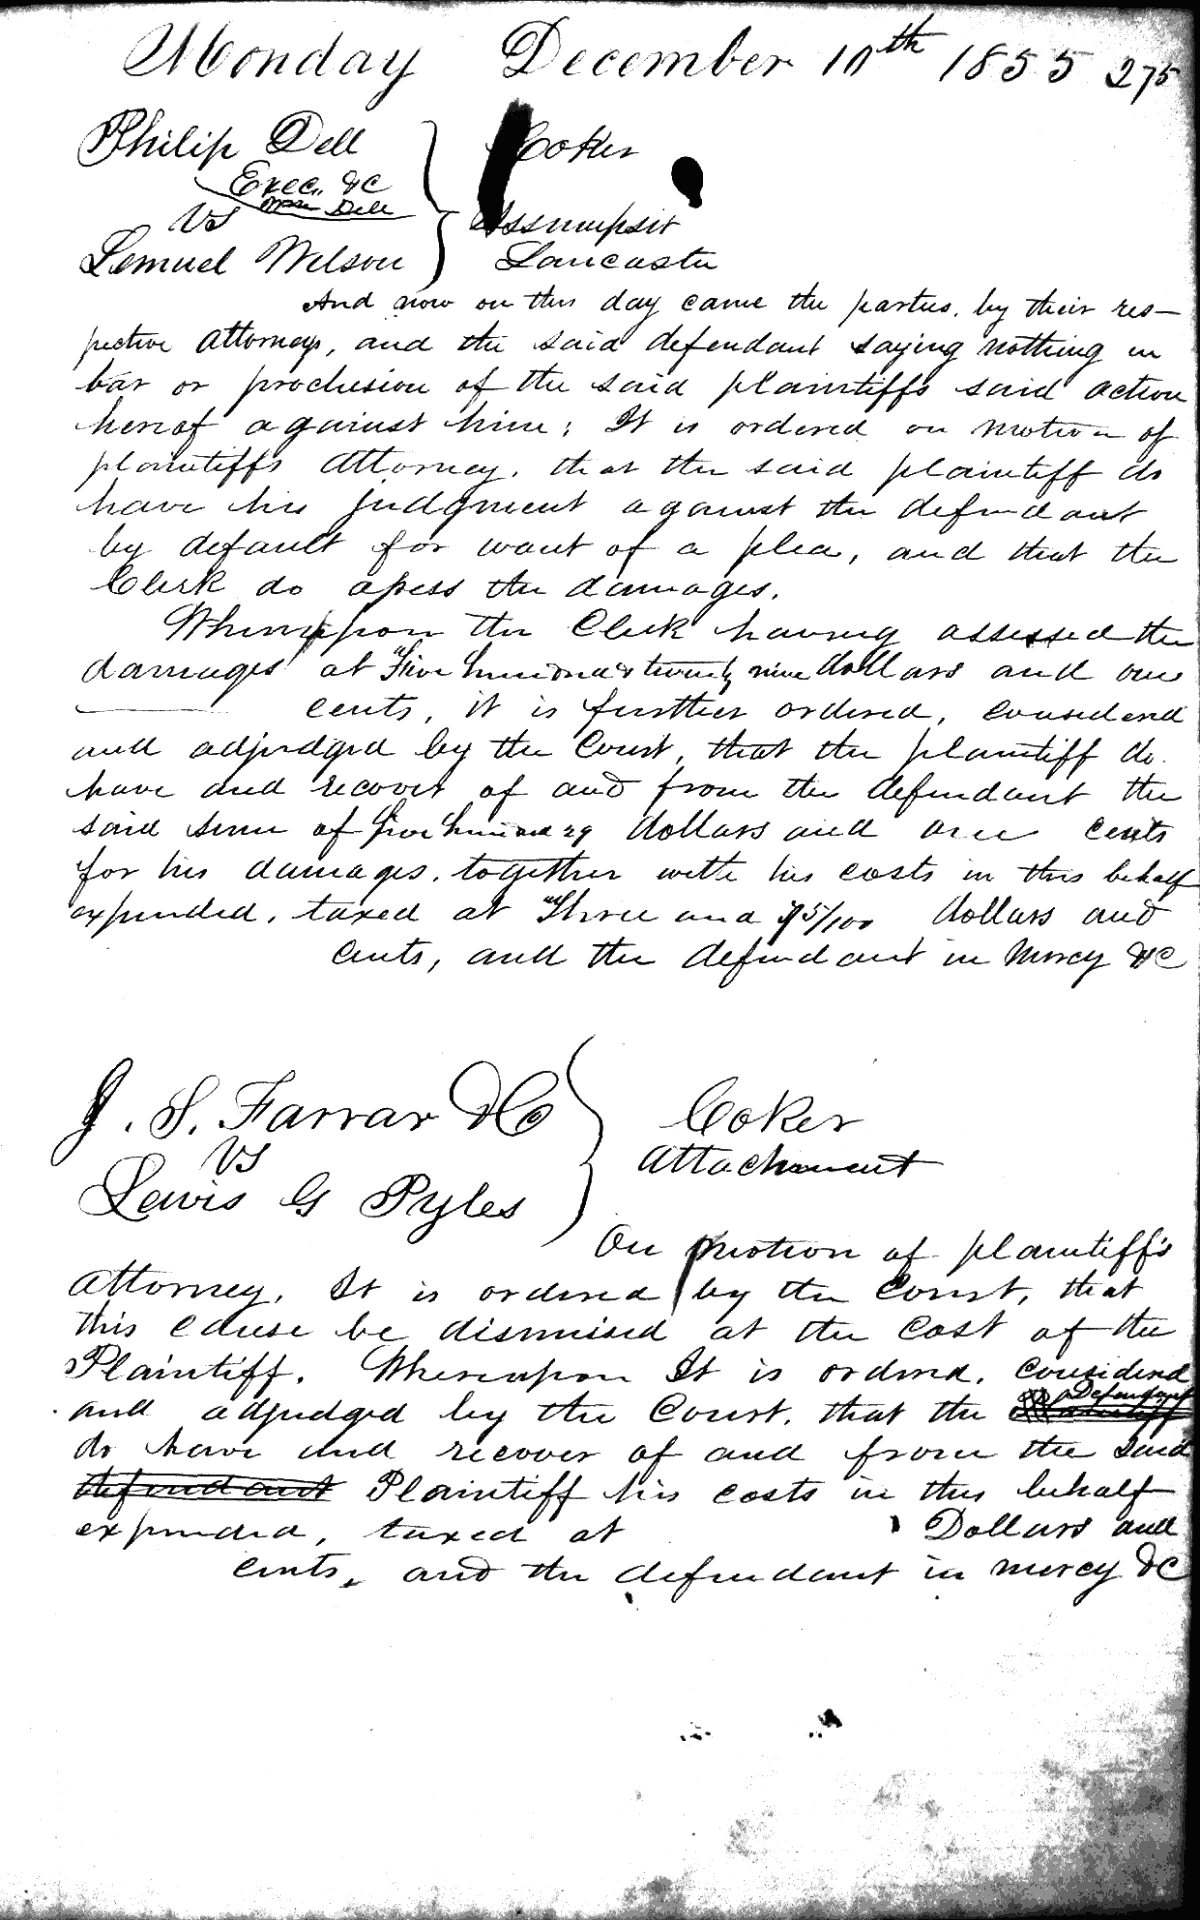 Monday December 10th 1855 275
Philip Dell Coker
Exec. &c
Dell
vs Assumpsit
Lemuel Wilson Lancaster
And now on this day came the parties, by their res-
pective attorneys, and the said defendant saying nothing in
bar or preclusion of the said plaintiffs said action
hereof against him; It is ordered on motion of
plaintiffs attorney, that the said plaintiff do
have his judgment against the defendant
by default for want of a plea, and that the
Clerk do asess the damages.
Whereupon the Clerk having assessed the
damages at "Five hundred & twenty nine dollars and one
cents, it is further ordered, considered
and adjudged by the Court, that the plaintiff do
have and recover of and from the defendant the
said sum of five hundred 29 dollars and one cents
for his damages, together with his costs in this behalf
expended, taxed at "Three and 75/100 dollars and
cents, and the defendant in mercy &c
J. S. Farrar & Co Coker
vs Attachment
Lewis G Pyles
On motion of plaintiff's
attorney, It is ordered by the Court, that
this cause be dismised at the cost of the
Plaintiff. Whereupon It is ordered, considered
and adjudged by the Court, that the Defendant
do have and recover of and from the said
defendant Plaintiff his costs in this behalf
expended, taxed at Dollars and
cents, and the defendant in mercy &c